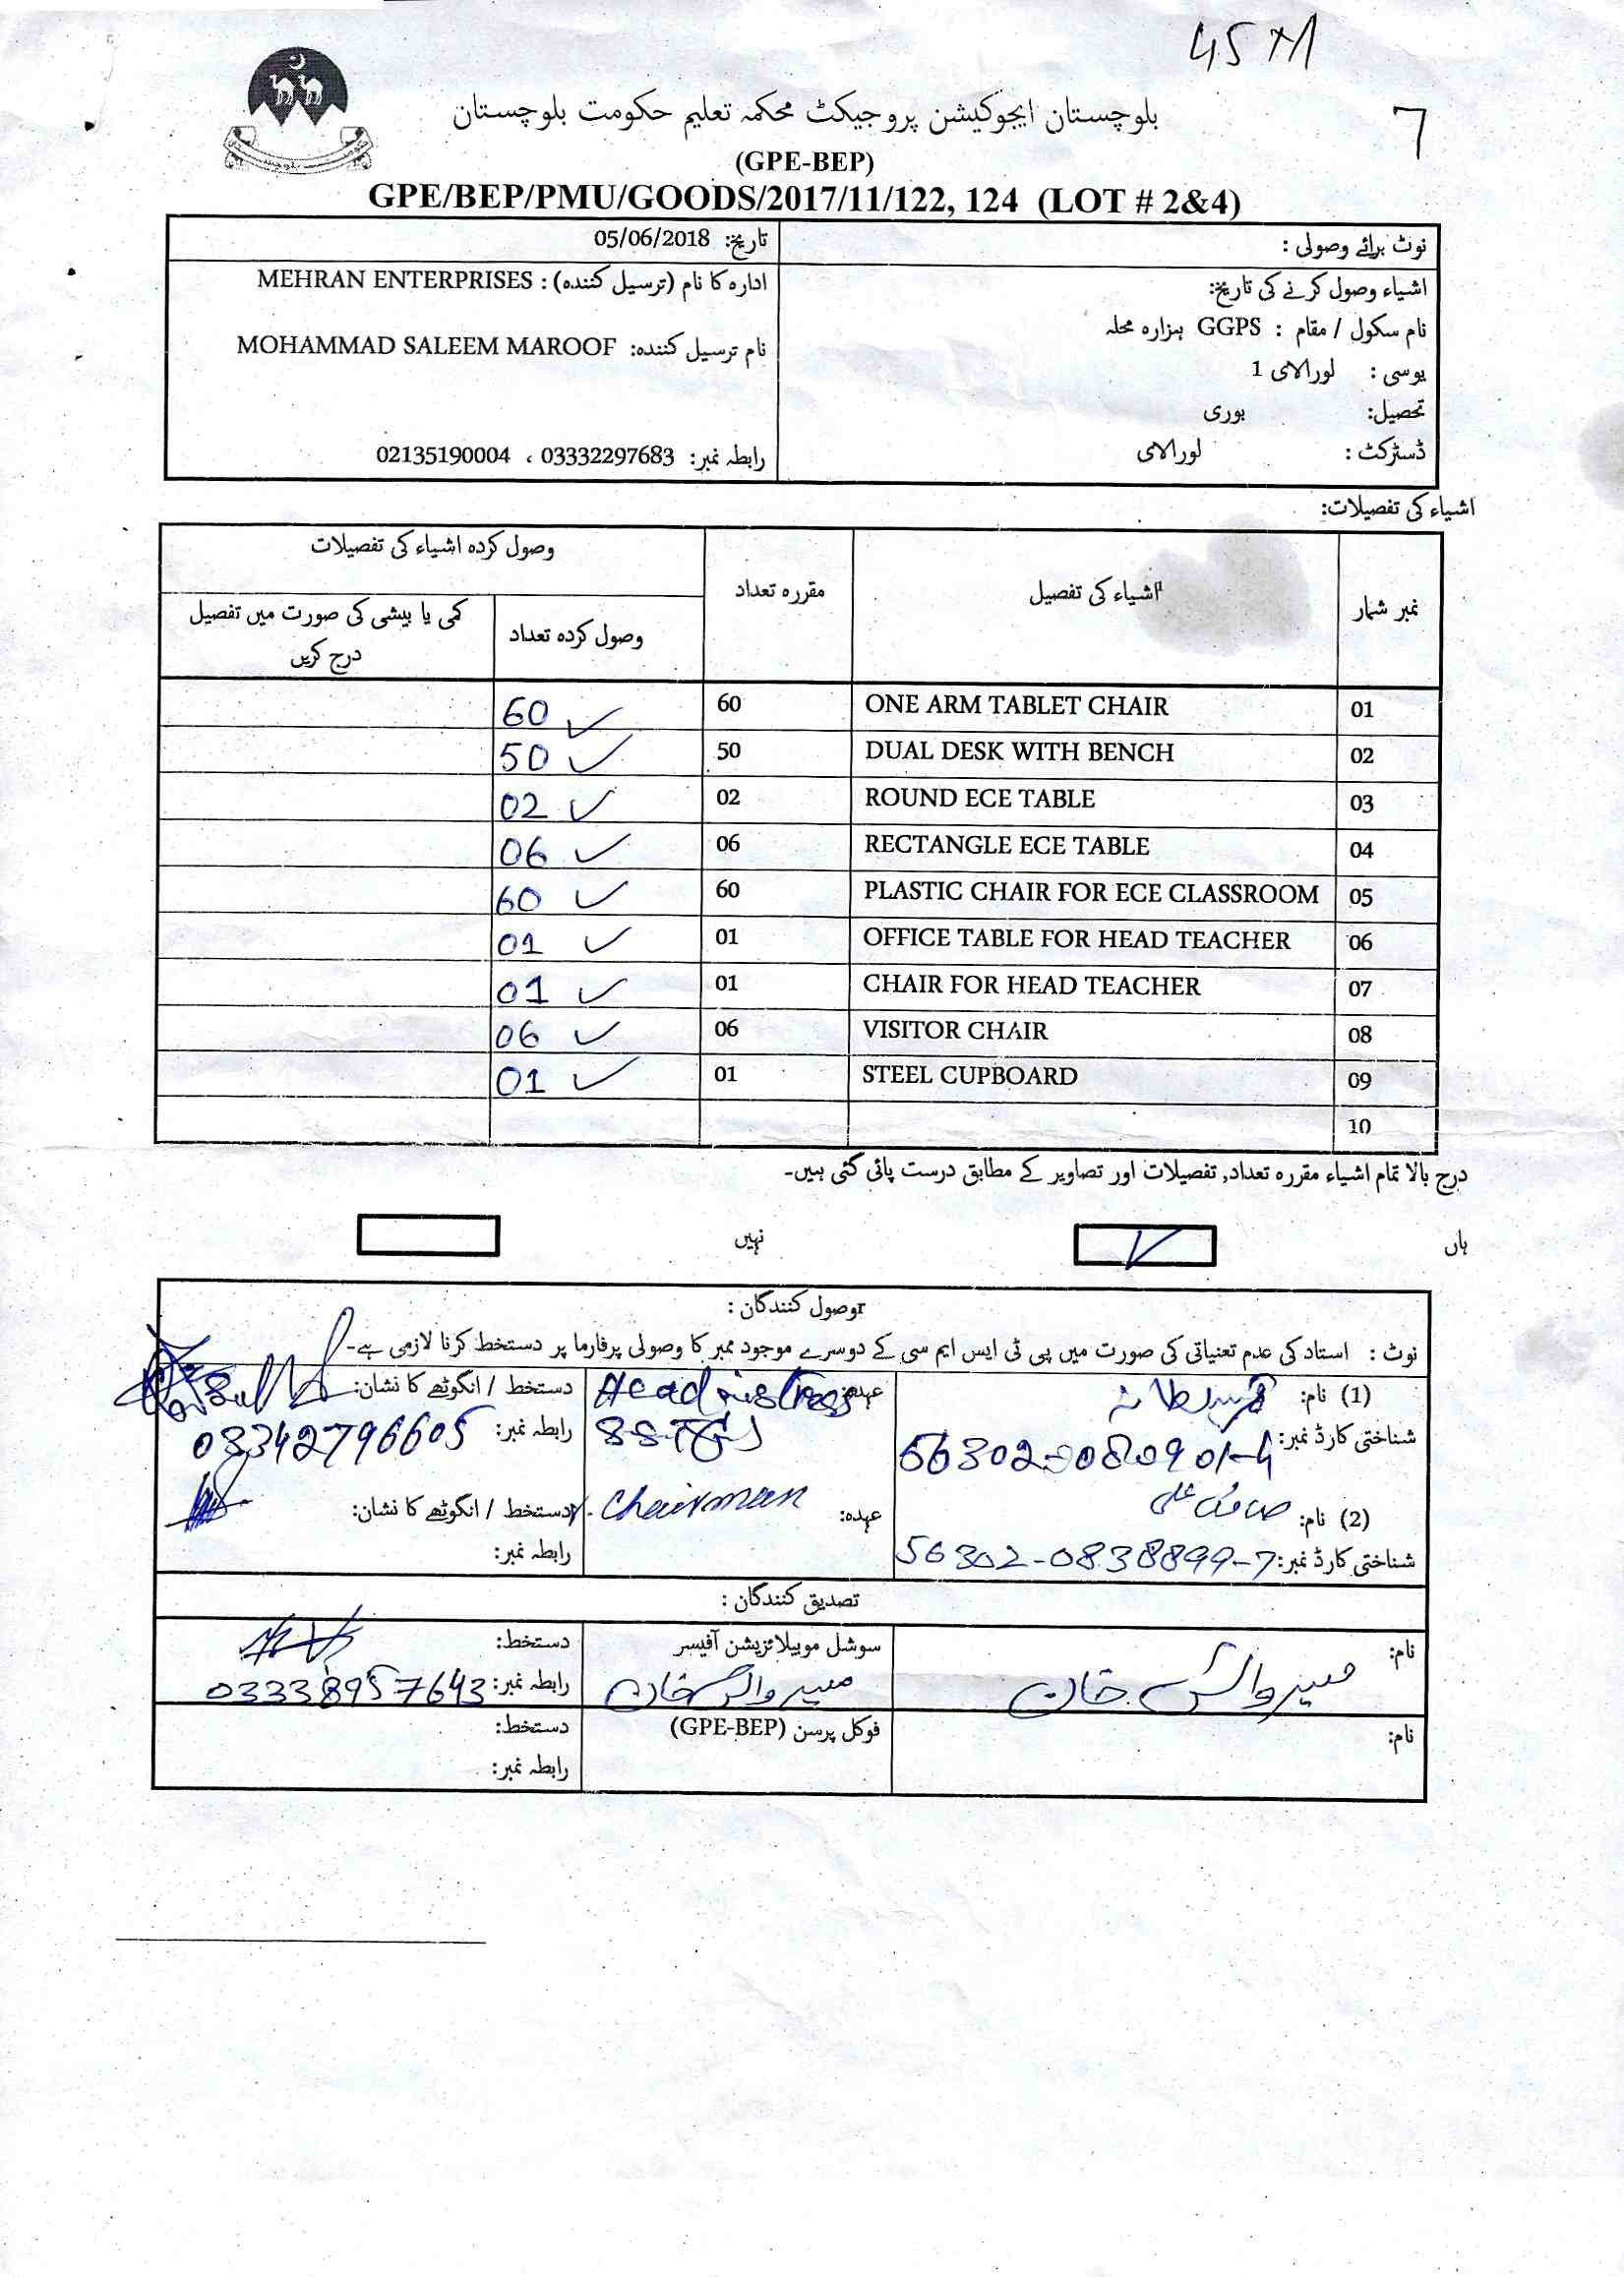 45 +1
7
بلوچستان ایجوکیشن پروجیکٹ محکمہ تعلیم حکومت بلوچستان
(GPE-BEP)
GPE/BEP/PMU/GOODS/2017/11/122, 124 (LOT # 2&4)
نوٹ برائے وصولی :
تاریخ: 05/06/2018
اشیاء وصول کرنے کی تاریخ:
ادارہ کا نام (ترسیل کنندہ) : MEHRAN ENTERPRISES
نام سکول / مقام : GGPS ہزارہ محلہ
نام ترسیل کنندہ: MOHAMMAD SALEEM MAROOF
یوسی : لورالای 1
تحصیل: بوری
ڈسٹرکٹ : لورالای
رابطہ نمبر: 03332297683 ، 02135190004
اشیاء کی تفصیلات:
نمبر شمار اشیاء کی تفصیل مقررہ تعداد وصول کردہ اشیاء کی تفصیلات
وصول کردہ تعداد کمی یا بیشی کی صورت میں تفصیل درج کریں
01 ONE ARM TABLET CHAIR 60 60 ✓
02 DUAL DESK WITH BENCH 50 50 ✓
03 ROUND ECE TABLE 02 02 ✓
04 RECTANGLE ECE TABLE 06 06 ✓
05 PLASTIC CHAIR FOR ECE CLASSROOM 60 60 ✓
06 OFFICE TABLE FOR HEAD TEACHER 01 01 ✓
07 CHAIR FOR HEAD TEACHER 01 01 ✓
08 VISITOR CHAIR 06 06 ✓
09 STEEL CUPBOARD 01 01 ✓
10
درج بالا تمام اشیاء مقررہ تعداد, تفصیلات اور تصاویر کے مطابق درست پائی گئی ہیں۔
ہاں ✓ نہیں
وصول کنندگان :
نوٹ : استاد کی عدم تعنیاتی کی صورت میں پی ٹی ایس ایم سی کے دوسرے موجود ممبر کا وصولی پرفارما پر دستخط کرنا لازمی ہے۔
(1) نام: عہدہ: Headmistress دستخط / انگوٹھے کا نشان:
شناختی کارڈ نمبر: رابطہ نمبر: 03342796605
(2) نام: عہدہ: Chairman دستخط / انگوٹھے کا نشان:
شناختی کارڈ نمبر: 56302-0838899-7 رابطہ نمبر:
تصدیق کنندگان :
نام: سوشل موبیلائزیشن آفیسر دستخط:
رابطہ نمبر: 03338957643
نام: فوکل پرسن (GPE-BEP) دستخط:
رابطہ نمبر: